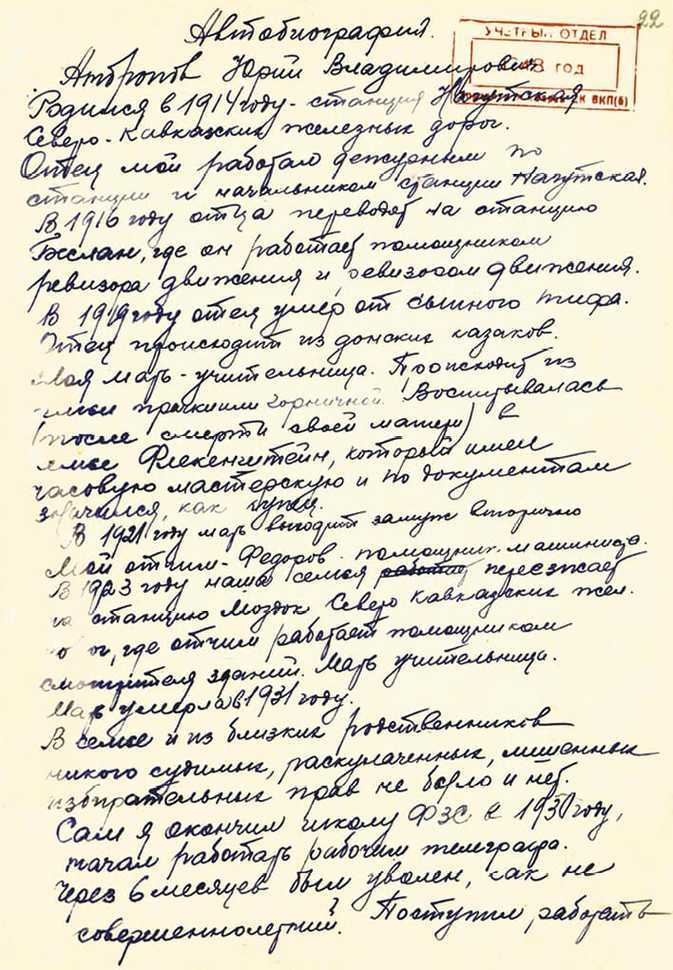 22
УЧЕТНЫЙ ОТДЕЛ
1948 год
ВКП(б)
Автобиография.
Андропов Юрий Владимирович
Родился в 1914 году - станция Нагутская
Северо-Кавказских железных дорог.
Отец мой работал дежурным по
станции и начальником станции Нагутская.
В 1916 году отца переводят на станцию
Беслан, где он работает помощником
ревизора движения и ревизором движения.
В 1919 году отец умер от сыпного тифа.
Отец происходит из донских казаков.
Моя мать - учительница. Происходит из
семьи прачки или горничной. Воспитывалась
(после смерти своей матери) в
семье Флекенштейн, который имел
часовую мастерскую и по документам
значился, как купец.
В 1921 году мать выходит замуж вторично
Мой отчим - Федоров. помощник. машиниста.
В 1923 году наша семья работает переезжает
на станцию Моздок Северо Кавказских жел.
дорог, где отчим работает помощником
смотрителя зданий. Мать учительница.
Мать умерла в 1931 году.
В семье и из близких родственников
никого судимых, раскулаченных, лишенных
избирательных прав не было и нет.
Сам я окончил школу ФЗС в 1930 году,
начал работать рабочим телеграфа.
Через 6 месяцев был уволен, как не
совершеннолетний. Поступил работать